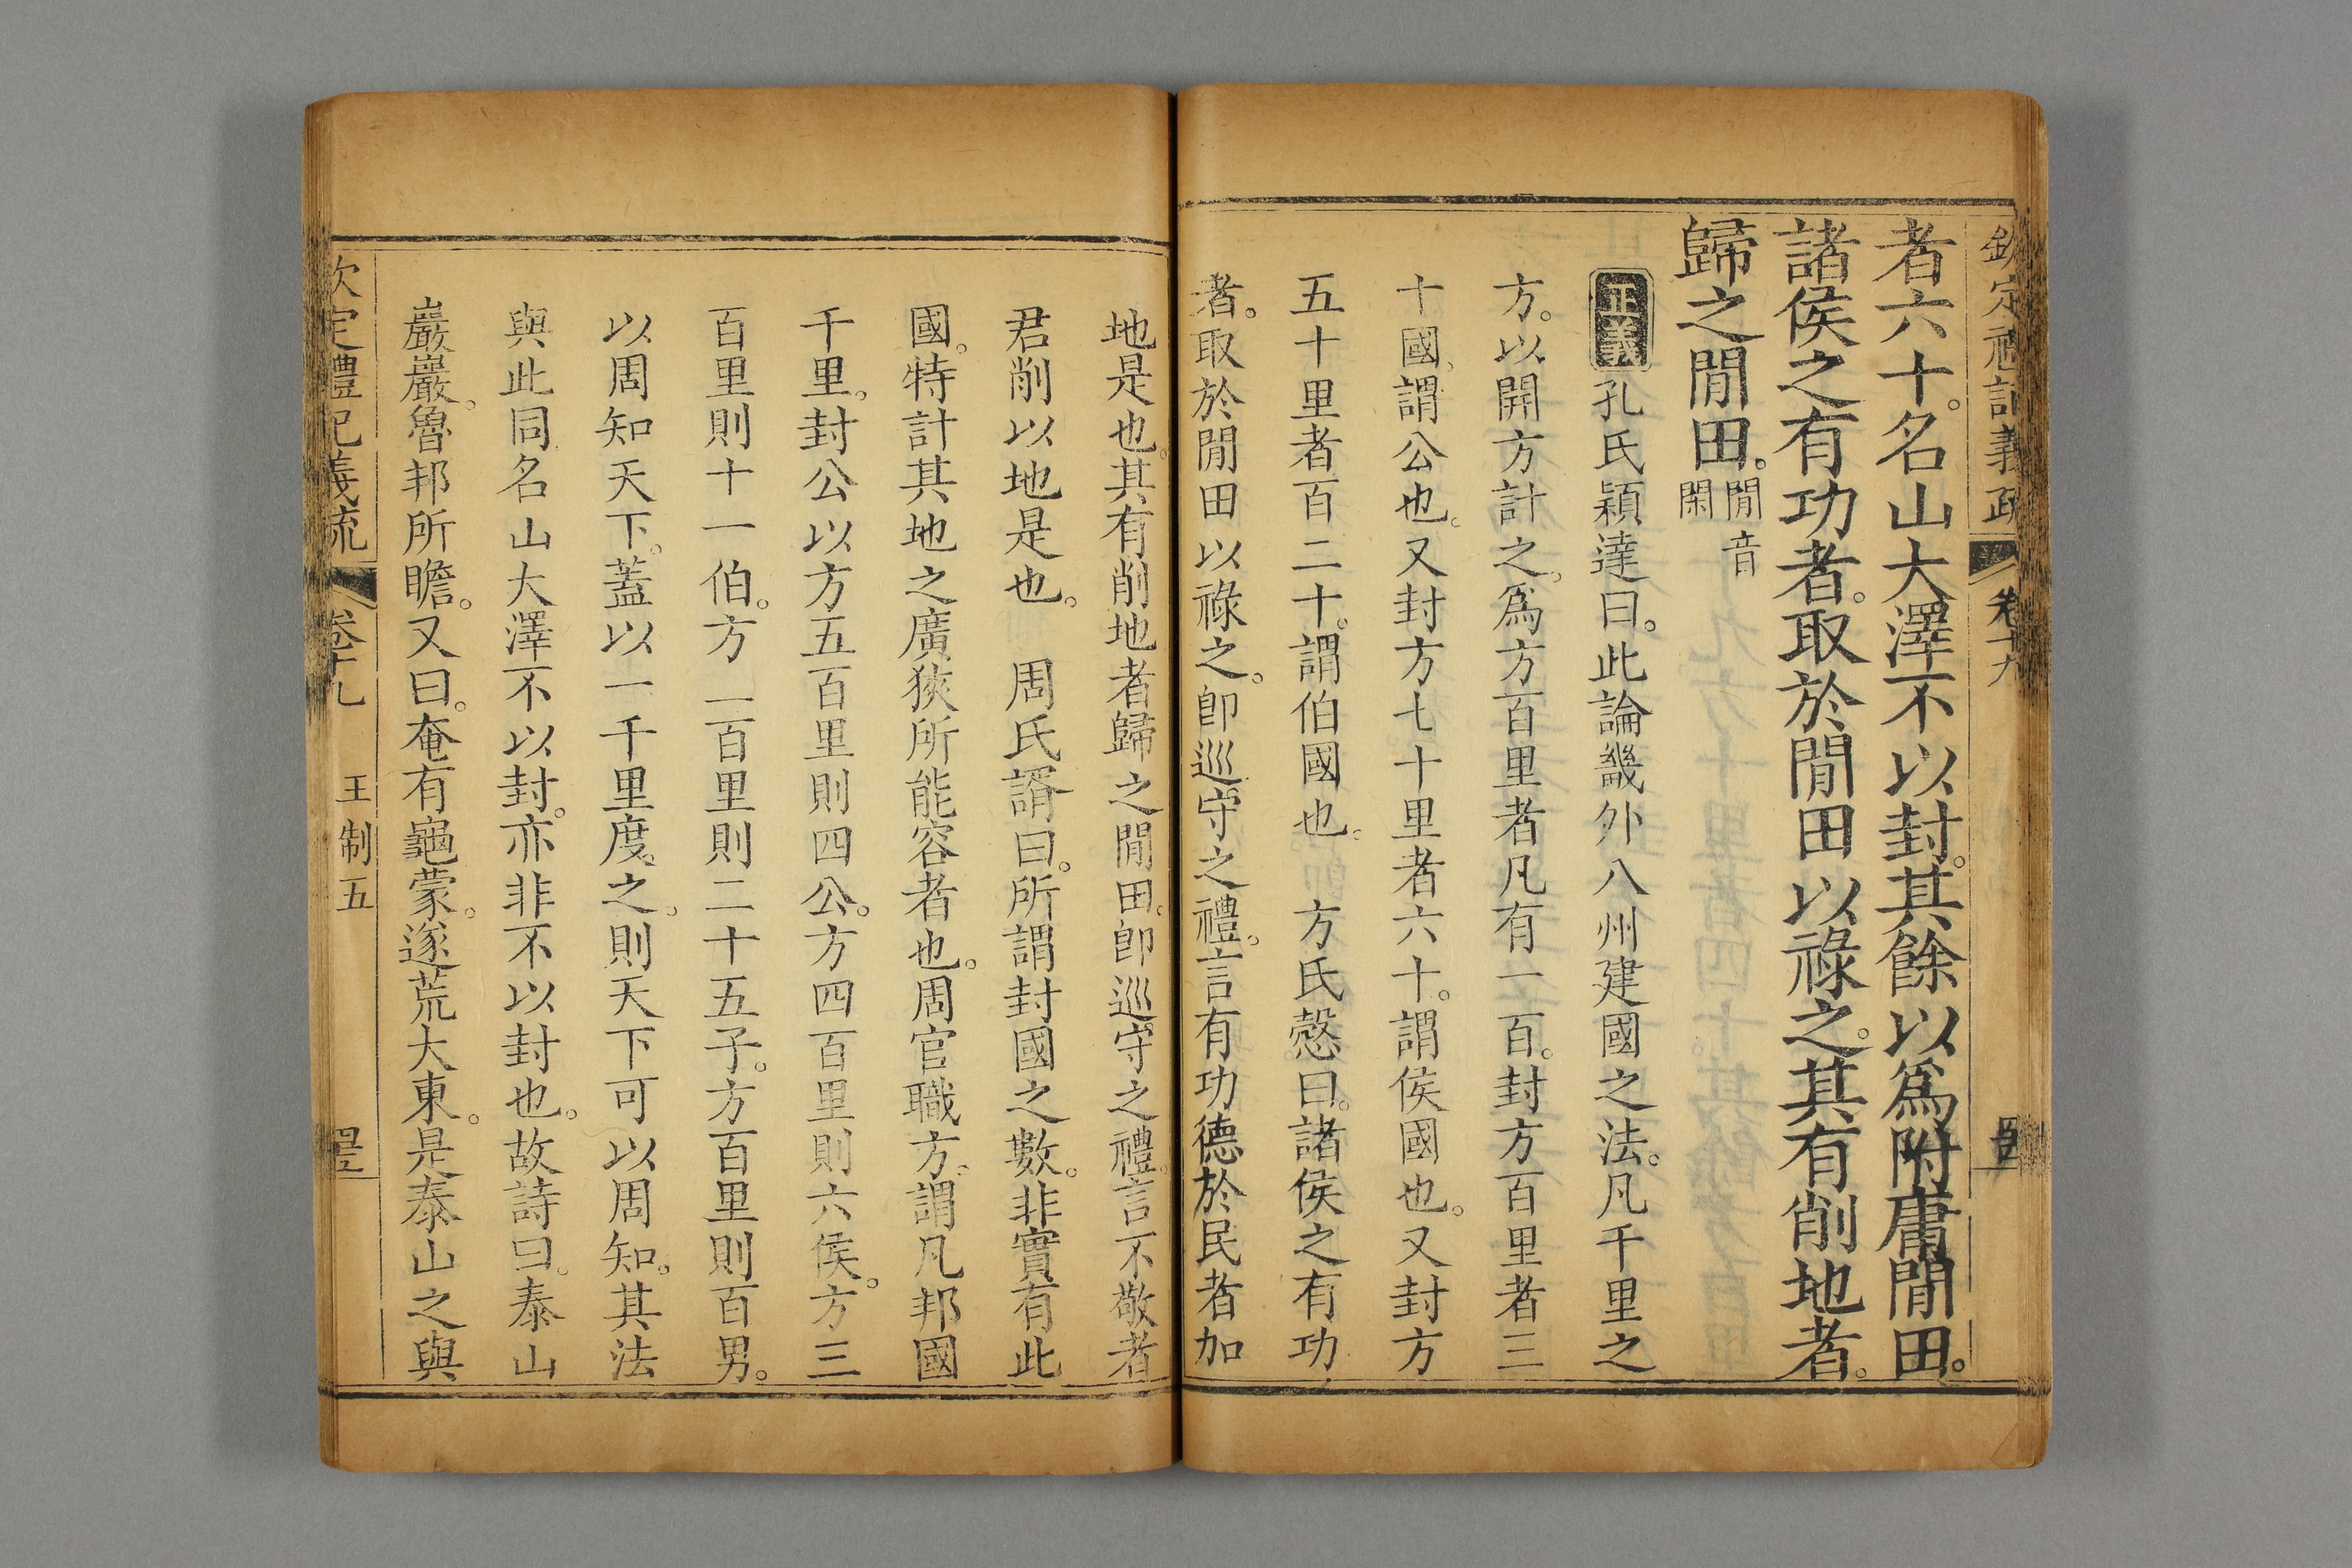 欽定禮記義疏 卷十九
者六十。名山大澤不以封。其餘以爲附庸閒田。
諸侯之有功者。取於閒田以祿之。其有削地者。
歸之閒田。閒音
閑
正義 孔氏穎達曰。此論畿外八州建國之法。凡千里之
方。以開方計之。爲方百里者凡有一百。封方百里者三
十國。謂公也。又封方七十里者六十。謂侯國也。又封方
五十里者百二十。謂伯國也。 方氏慤曰。諸侯之有功
者。取於閒田以祿之。卽巡守之禮。言有功德於民者加
地是也。其有削地者歸之閒田。卽巡守之禮。言不敬者
君削以地是也。 周氏諝曰。所謂封國之數。非實有此
國。特計其地之廣狹所能容者也。周官職方。謂凡邦國
千里。封公以方五百里則四公。方四百里則六侯。方三
百里則十一伯。方二百里則二十五子。方百里則百男。
以周知天下。蓋以一千里度之。則天下可以周知。其法
與此同名山大澤不以封。亦非不以封也。故詩曰。泰山
巖巖。魯邦所瞻。又曰。奄有龜蒙。遂荒大東。是泰山之與
欽定禮記義疏 卷十九 王制五